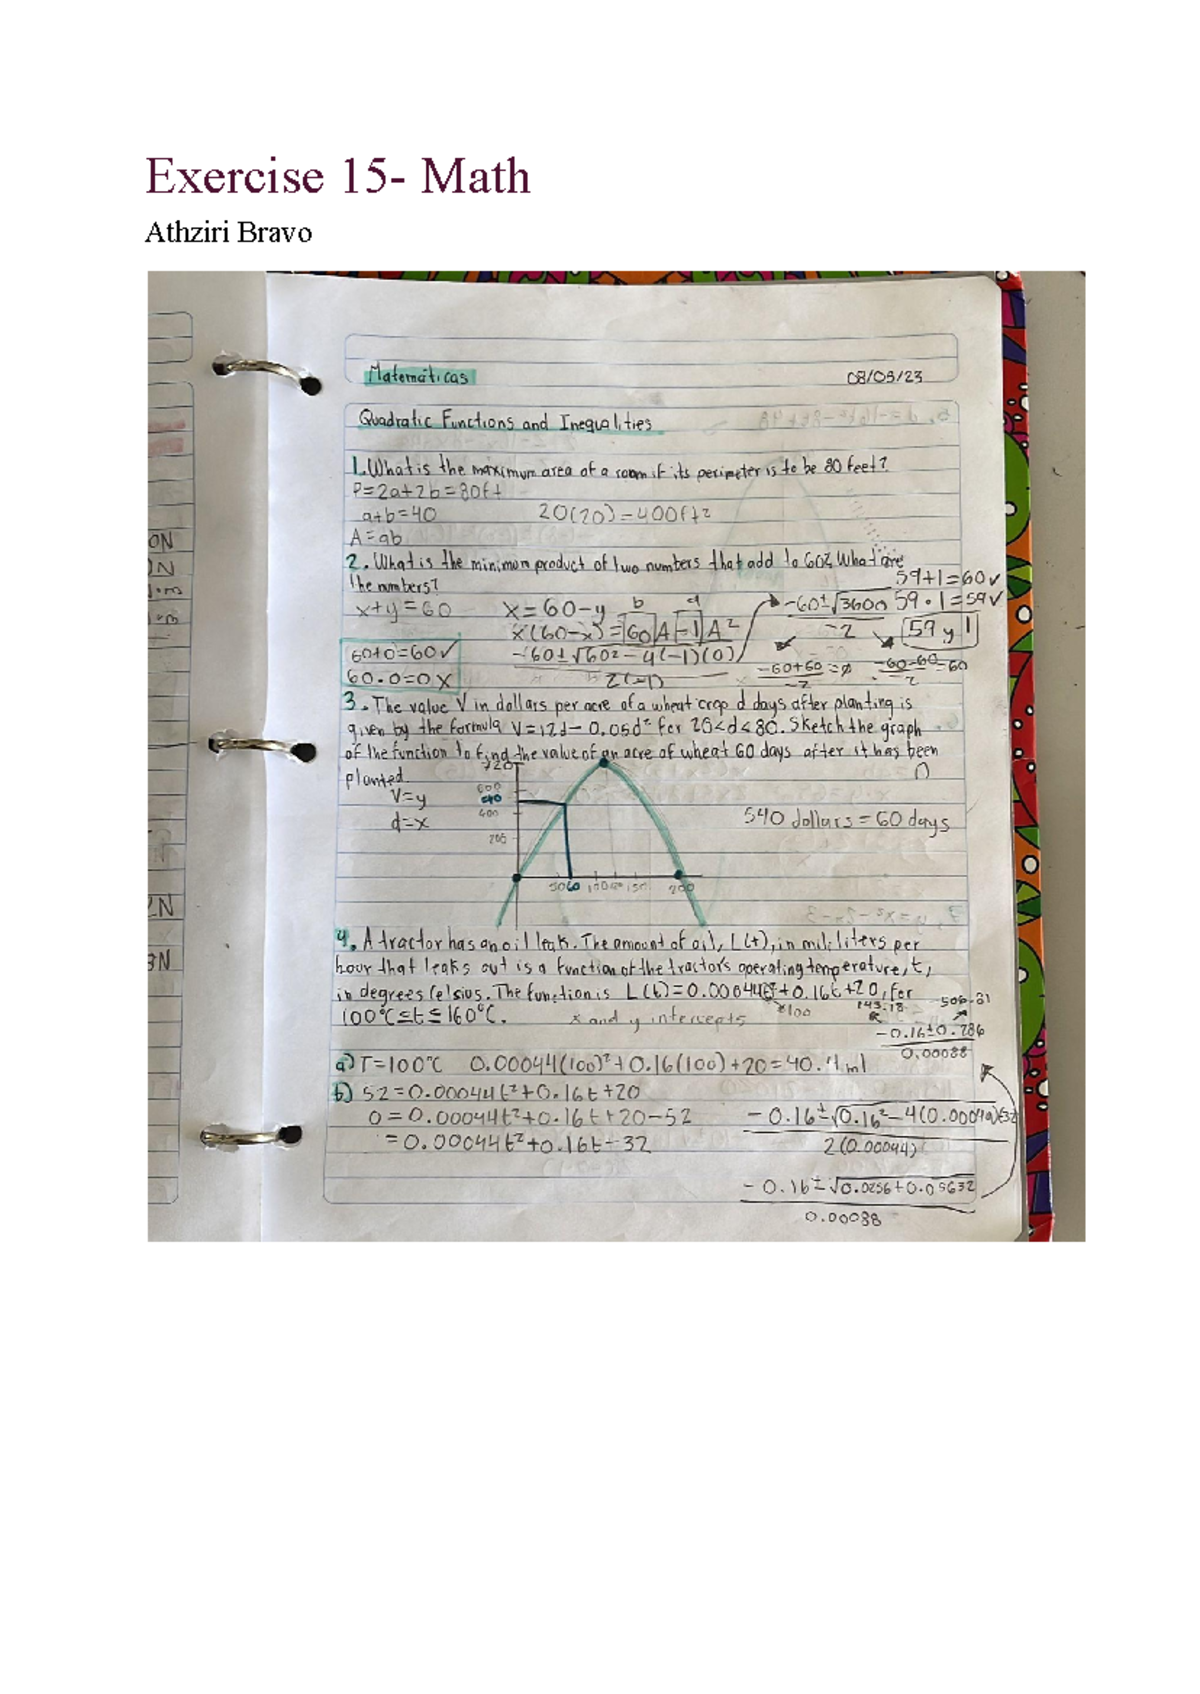 Exercise 15- Math
Athziri Bravo
Matemáticas 08/05/23
Quadratic Functions and Inequalities
1. What is the maximum area of a room if its perimeter is to be 80 feet?
P=2a+2b=80ft
a+b=40 20(20)=400ft²
A=ab
2. What is the minimum product of two numbers that add to 60? What are
the numbers?
59+1=60✓
x+y=60 x=60-y b a -60±√3600 59·1=59✓
x(60-x)=60A-1A² -2 59 y 1
60+0=60✓ -60±√60²-4(-1)(0) -60+60=0 -60-60=60
60·0=0 X 2(-1) -2 -2
3. The value V in dollars per acre of a wheat crop d days after planting is
given by the formula V=12d-0.05d² for 20<d<80. Sketch the graph
of the function to find the value of an acre of wheat 60 days after it has been
planted.
V=y
d=x
720
600
540
400
200
50 60 100 150 200
540 dollars = 60 days
4. A tractor has an oil leak. The amount of oil, L(t), in milliliters per
hour that leaks out is a function of the tractor's operating temperature, t,
in degrees Celsius. The function is L(t)=0.00044t²+0.16t+20, for
100°C≤t≤160°C. x and y intercepts
143.18 506.81
-0.16±0.286
0.00088
a) T=100°C 0.00044(100)²+0.16(100)+20=40.4 ml
b) 52=0.00044t²+0.16t+20
0=0.00044t²+0.16t+20-52
=0.00044t²+0.16t-32
-0.16±√0.16²-4(0.00044)(-32)
2(0.00044)
-0.16±√0.0256+0.05632
0.00088